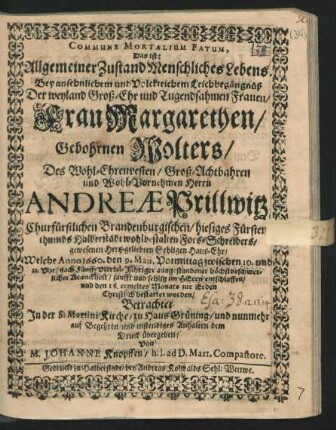 COMMUNE MORTALIUM FATUM,
Das ist:
Allgemeiner Zustand Menschliches Lebens
Bey ansehnlichem und Volckreichem Leichbegängnüß
Der weyland Groß-Ehr und Tugendsahmen Frauen/
Frau Margarethen/
Gebohrnen Wolters/
Des Wohl-Ehrenvesten/ Groß-Achtbahren
und Wohl-Vornehmen Herrn
ANDREÆ Prillwitz
Churfürstlichen Brandenburgischen/ hiesiges Fürsten
thumbs Halberstadt wohlbestalten Forst-Schreibers/
gewesenen Hertz-geliebten Ehelichen Haus-Ehr/
Welche Anno 1680. den 9. Maii, Vormittag zwischen 10. und
11. Uhr/ nach
und den 16. ermeltes Monats zur Erden
Christlich bestattet worden/
Betrachtet
In der St. Martini Kirche/ zu Haus Grüning/ und nunmehr
auff Begehren und inständiges Anhalten dem
Druck übergeben/
Von
M. JOHANNE Knopffen/ h. l. ad D. Mart. Compastore.
Gedruckt zu Halberstadt/ bey Andreas Kolwalds Sehl: Wittwe.
7